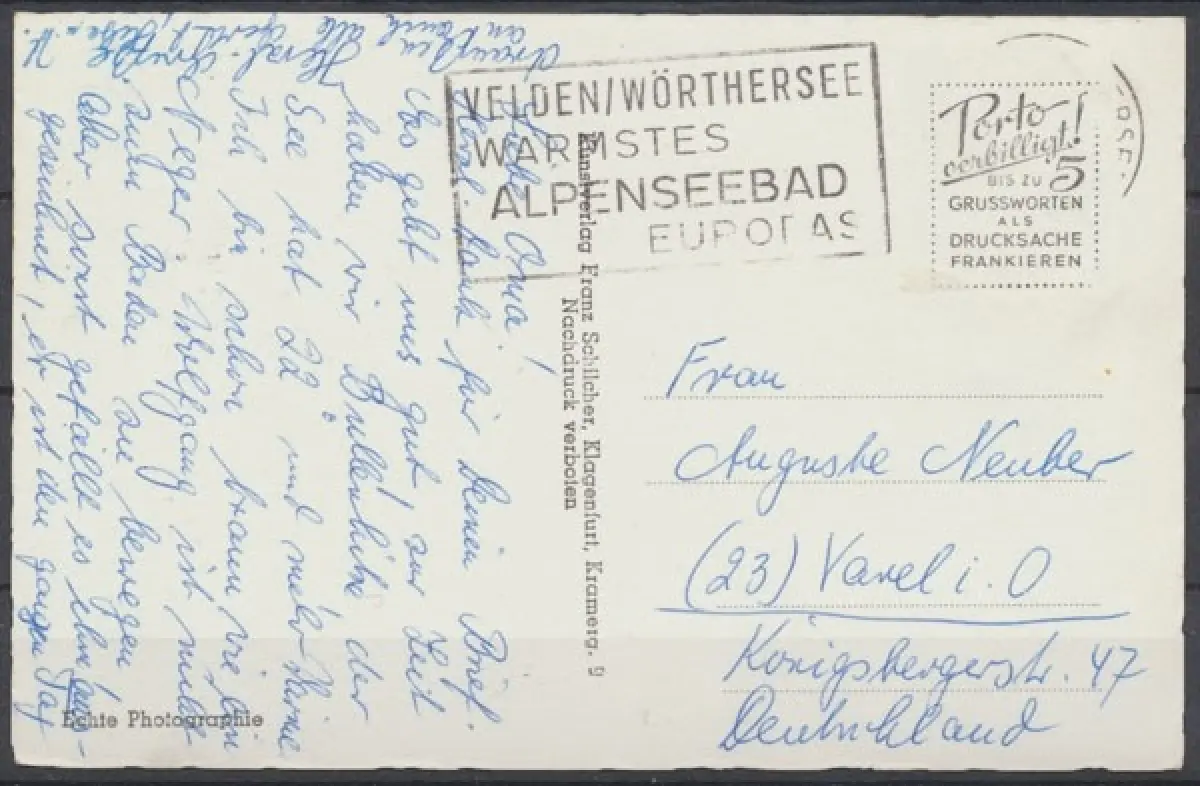 VELDEN/WÖRTHERSEE
WARMSTES
ALPENSEEBAD
EUROPAS
Porto
verbilligt!
BIS ZU 5
GRUSSWORTEN
ALS
DRUCKSACHE
FRANKIEREN
Liebe Oma!
Herzl. Dank für Deinen Brief.
Es geht uns gut, zur Zeit
haben wir Bullenhitze der
See hat 22° und mehr Wärme
Ich bin schon braun wie ein
Neger. Wolfgang ist nicht
zum Baden zu bewegen
aber sonst gefällt es ihm aus-
gezeichnet, er ist den ganzen Tag
draußen
an Euch alle
Herzl. Grüße
Kunstverlag Franz Schilcher, Klagenfurt, Kramerg. 9
Nachdruck verboten
Frau
Auguste Neuber
(23) Varel i. O
Königsbergerstr. 47
Deutschland
Echte Photographie